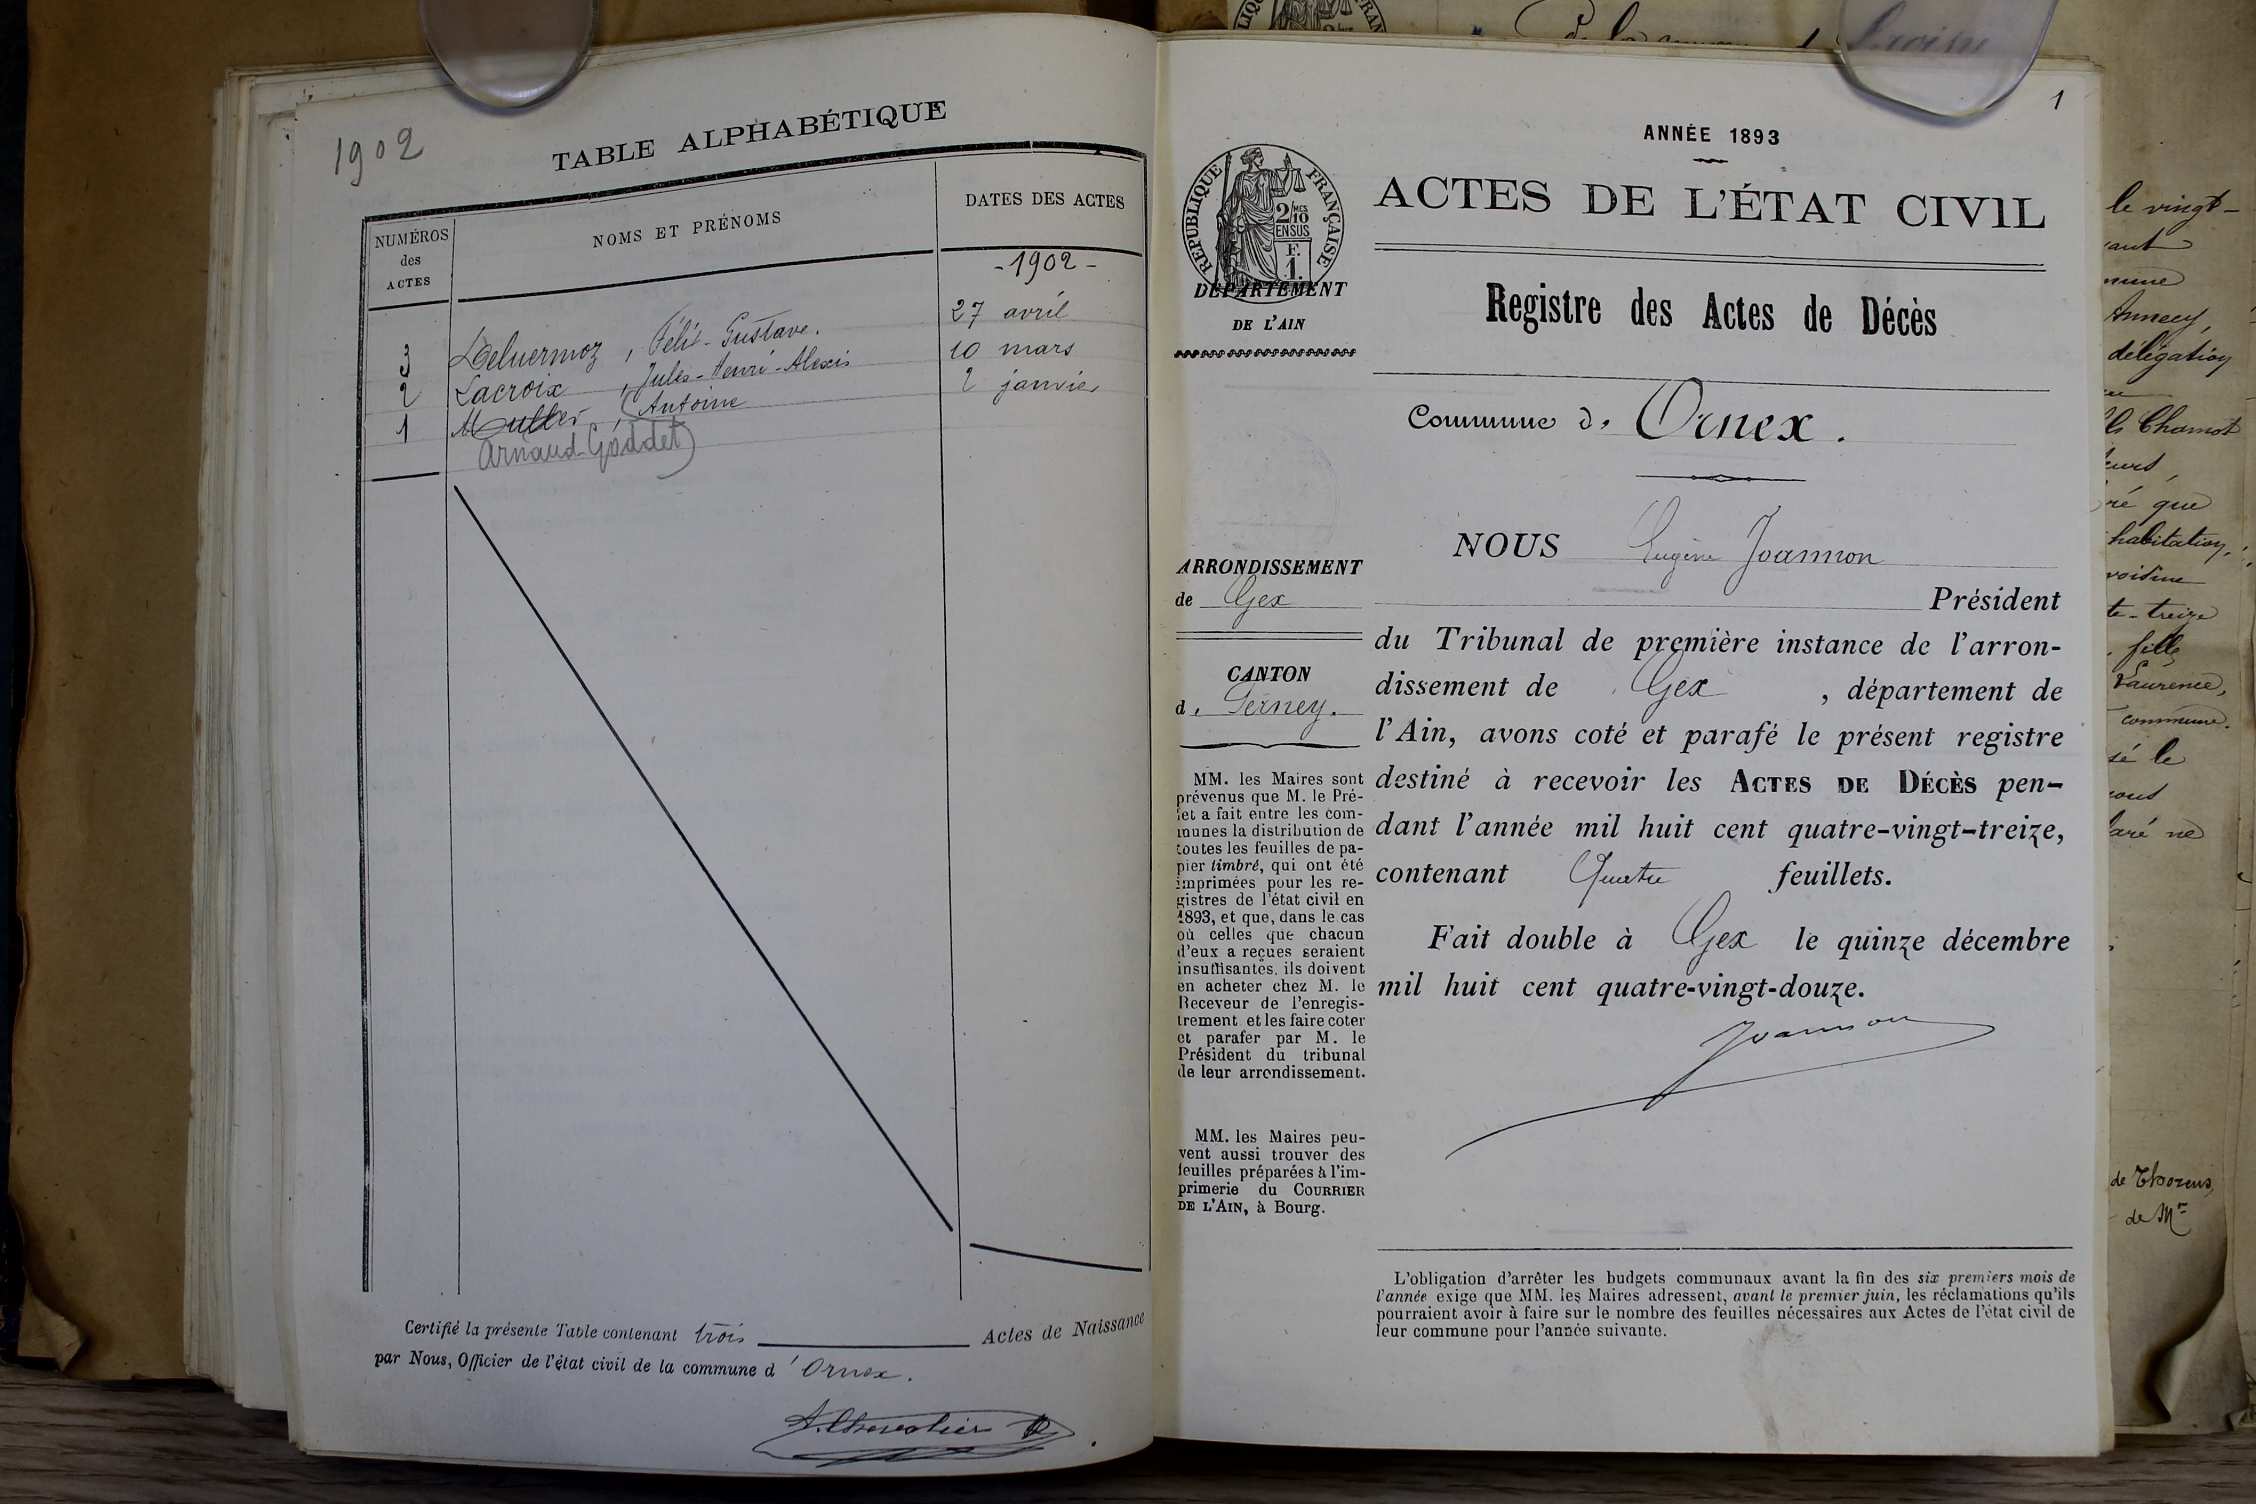 1902
TABLE ALPHABÉTIQUE
NUMÉROS
des
ACTES
NOMS ET PRÉNOMS
DATES DES ACTES
-1902-
3 Deluermoz, Félix-Gustave. 27 avril
2 Lacroix, Jules-Henri-Alexis 10 mars
1 Muller, (Antoine 2 janvier
Arnaud-Goddet)
Certifié la présente Table contenant trois Actes de Naissance
par Nous, Officier de l'état civil de la commune d'Ornex.
1
ANNÉE 1893
ACTES DE L'ÉTAT CIVIL
RÉPUBLIQUE FRANÇAISE
2/10 MES
EN SUS
F.
1.
DÉPARTEMENT
DE L'AIN
Registre des Actes de Décès
Commune d'Ornex.
ARRONDISSEMENT
de Gex
CANTON
d. Ferney.
MM. les Maires sont
prévenus que M. le Pré-
fet a fait entre les com-
munes la distribution de
toutes les feuilles de pa-
pier timbré, qui ont été
imprimées pour les re-
gistres de l'état civil en
1893, et que, dans le cas
où celles que chacun
d'eux a reçues seraient
insuffisantes, ils doivent
en acheter chez M. le
Receveur de l'enregis-
trement et les faire coter
et parafer par M. le
Président du tribunal
de leur arrondissement.
MM. les Maires peu-
vent aussi trouver des
feuilles préparées à l'im-
primerie du COURRIER
DE L'AIN, à Bourg.
NOUS Eugène Joannon
Président
du Tribunal de première instance de l'arron-
dissement de Gex, département de
l'Ain, avons coté et parafé le présent registre
destiné à recevoir les ACTES DE DÉCÈS pen-
dant l'année mil huit cent quatre-vingt-treize,
contenant Quatre feuillets.
Fait double à Gex le quinze décembre
mil huit cent quatre-vingt-douze.
Joannon
L'obligation d'arrêter les budgets communaux avant la fin des six premiers mois de
l'année exige que MM. les Maires adressent, avant le premier juin, les réclamations qu'ils
pourraient avoir à faire sur le nombre des feuilles nécessaires aux Actes de l'état civil de
leur commune pour l'année suivante.
le vingt-
Annecy,
délégation
Chamot
que
habitation,
voisine
te-treize
fille
Laurence,
commune.
sé le
laré ne
de Thorens,
de Mr